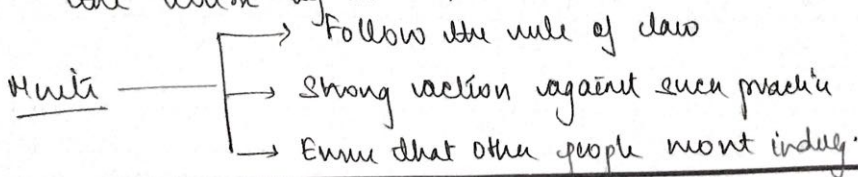 Follow the rule of law
Merits
Strong action against such practice
Ensure that other people wont indulg.